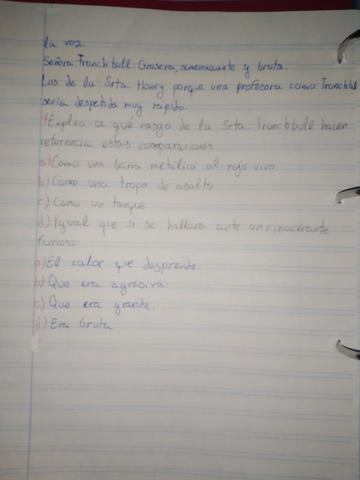 la voz
Señora Trunchbull: Grosera, amenazante y bruta.
Los de la Srta Honey porque una profesora como Trunchbull
sería despedida muy rápido.
Explica a qué rasgo de la Srta. Trunchbull hacen
referencia estas comparaciones
a) Como una barra metálica al rojo vivo
b) Como una tropa de asalto
c) Como un tanque
d) Igual que si se hallara ante un rinoceronte
furioso
a) El calor que desprende.
b) Que era agresiva
c) Que era grande.
d) Era bruta